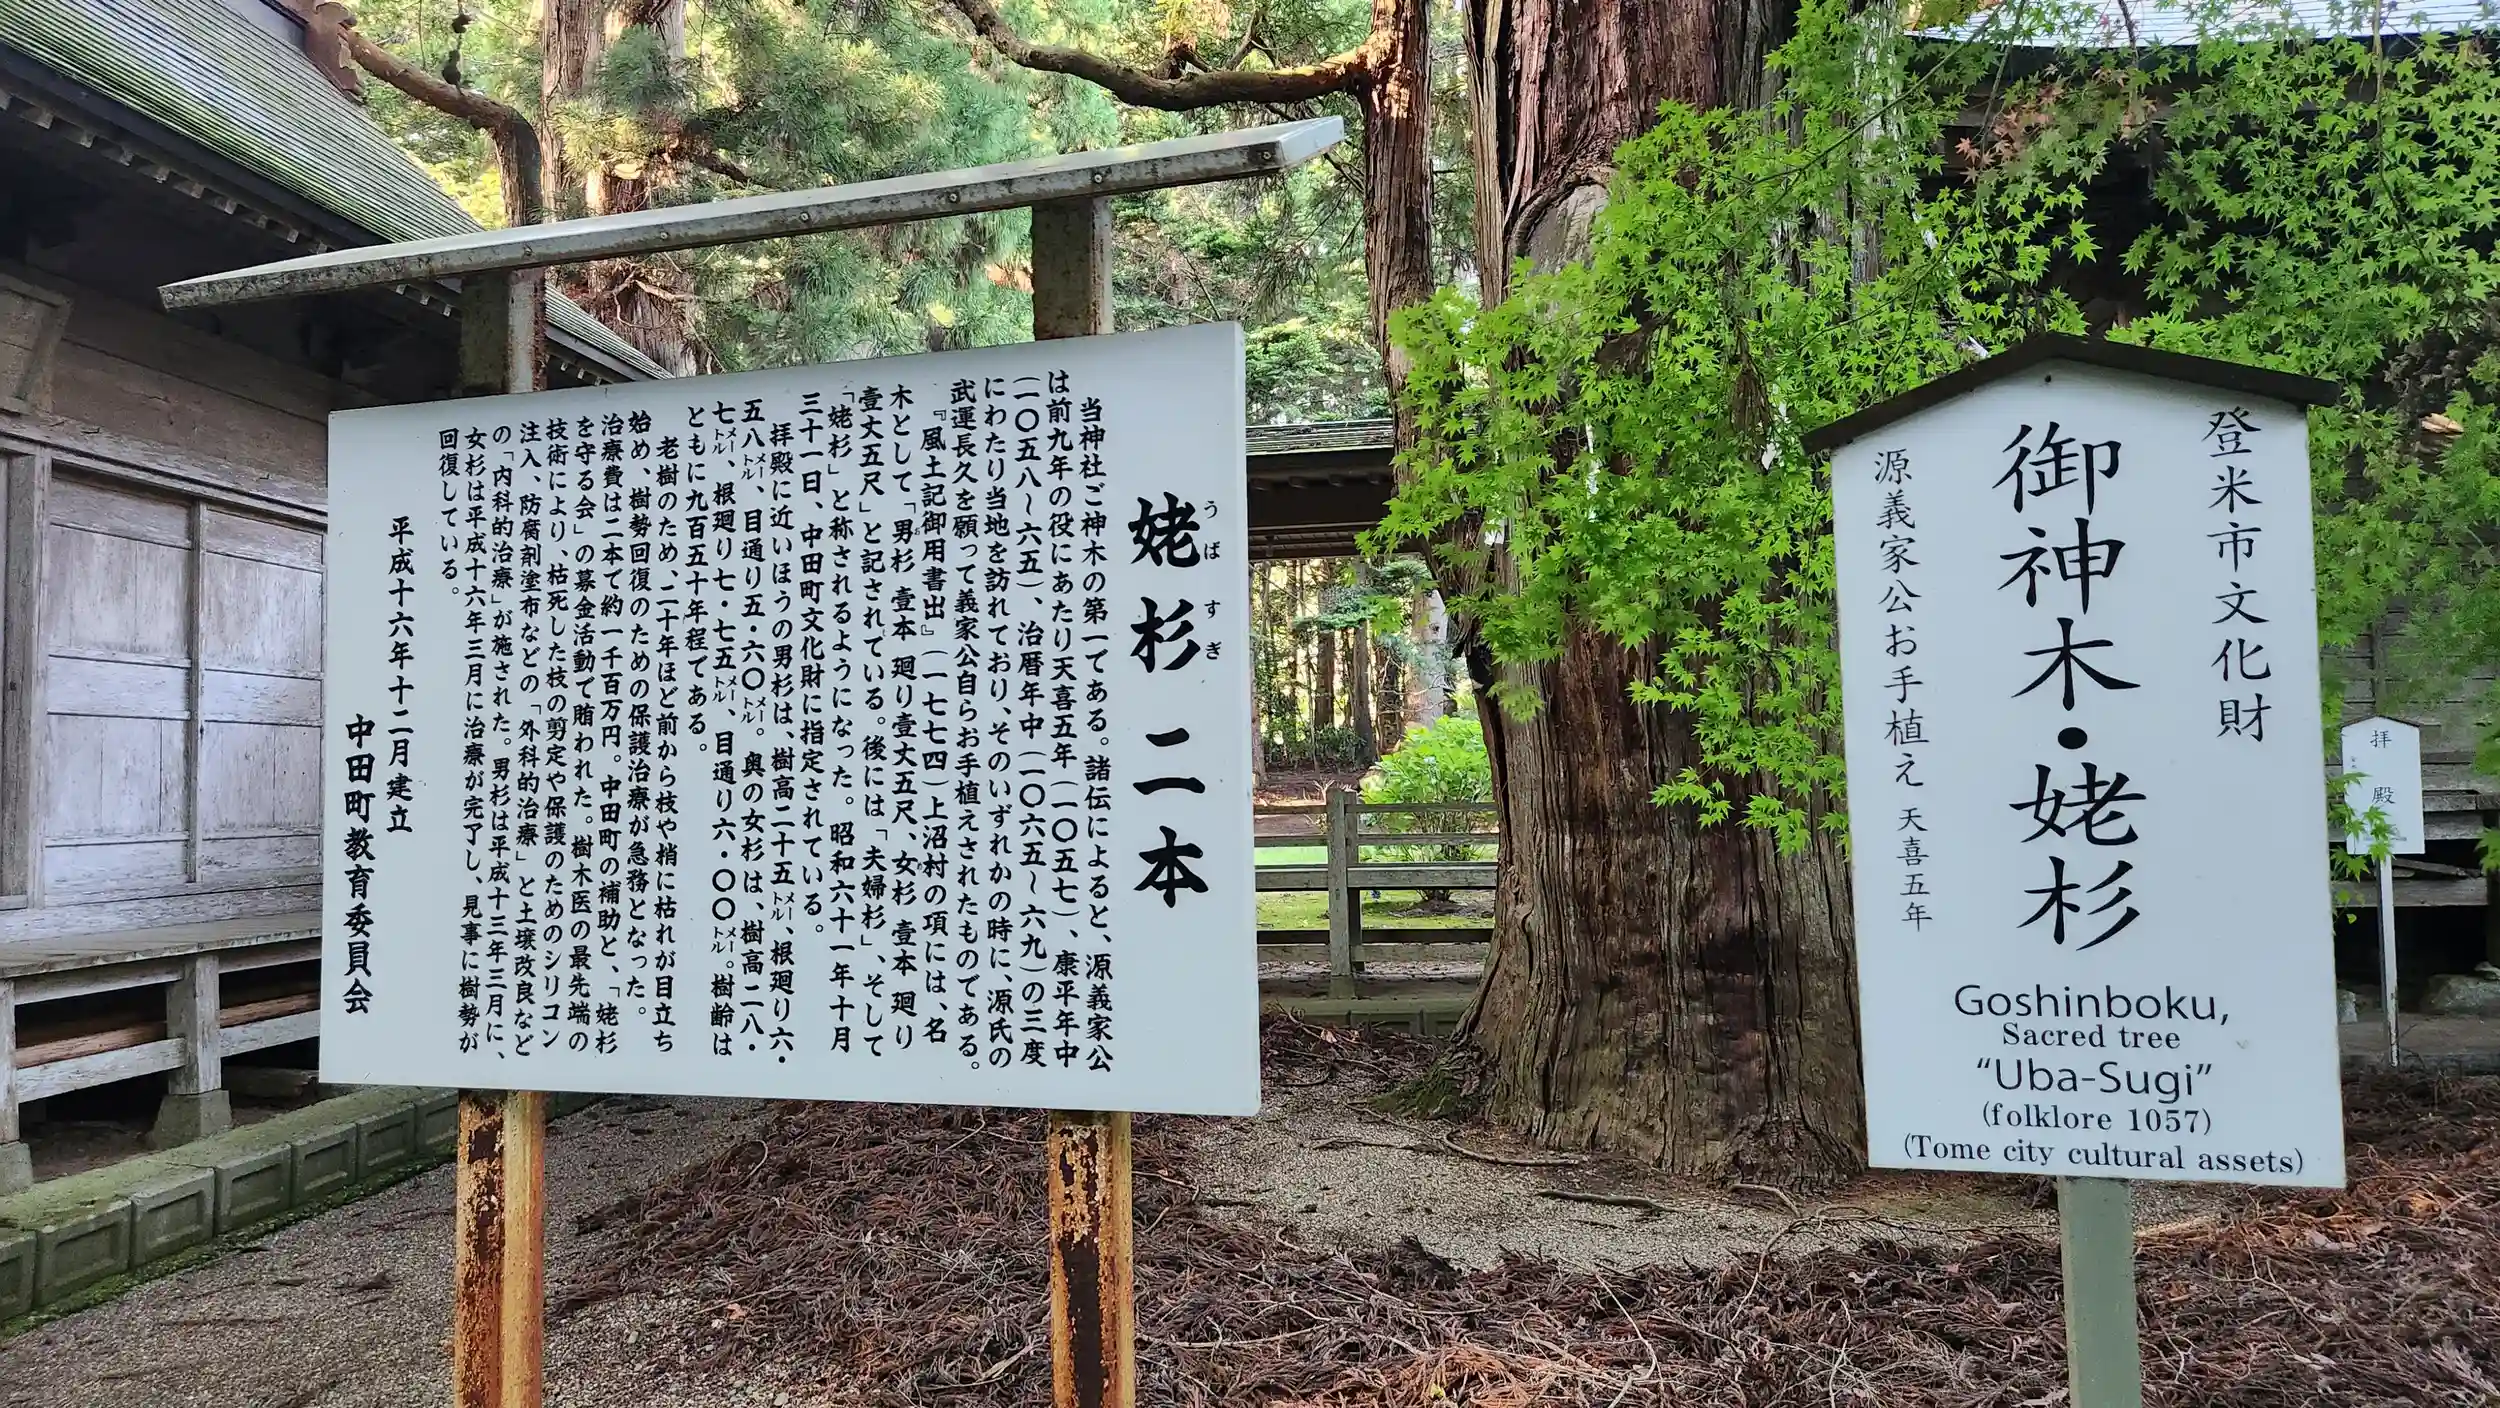 姥杉 二本
うば すぎ
当神社ご神木の第一である。諸伝によると、源義家公
は前九年の役にあたり天喜五年（一〇五七）、康平年中
（一〇五八〜六五）、治暦年中（一〇六五〜六九）の三度
にわたり当地を訪れており、そのいずれかの時に、源氏の
武運長久を願って義家公自らお手植えされたものである。
『風土記御用書出』（一七七四）上沼村の項には、名
木として、「男杉 壹本 廻り壹丈五尺、女杉 壹本 廻り
壹丈五尺」と記されている。後には「夫婦杉」、そして
「姥杉」と称されるようになった。昭和六十一年十月
三十一日、中田町文化財に指定されている。
拝殿に近いほうの男杉は、樹高二十五メートル、根廻り六・
五八メートル、目通り五・六〇メートル。奥の女杉は、樹高二八・
七メートル、根廻り七・七五メートル、目通り六・〇〇メートル。樹齢は
ともに九百五十年程である。
老樹のため、二十年ほど前から枝や梢に枯れが目立ち
始め、樹勢回復のための保護治療が急務となった。
治療費は二本で約一千百万円。中田町の補助と、「姥杉
を守る会」の募金活動で賄われた。樹木医の最先端の
技術により、枯死した枝の剪定や保護のためのシリコン
注入、防腐剤塗布などの「外科的治療」と土壌改良など
の「内科的治療」が施された。男杉は平成十三年三月に、
女杉は平成十六年三月に治療が完了し、見事に樹勢が
回復している。
平成十六年十二月建立
中田町教育委員会
登米市文化財
御神木・姥杉
源義家公お手植え 天喜五年
Goshinboku,
Sacred tree
“Uba-Sugi”
(folklore 1057)
(Tome city cultural assets)
拝殿